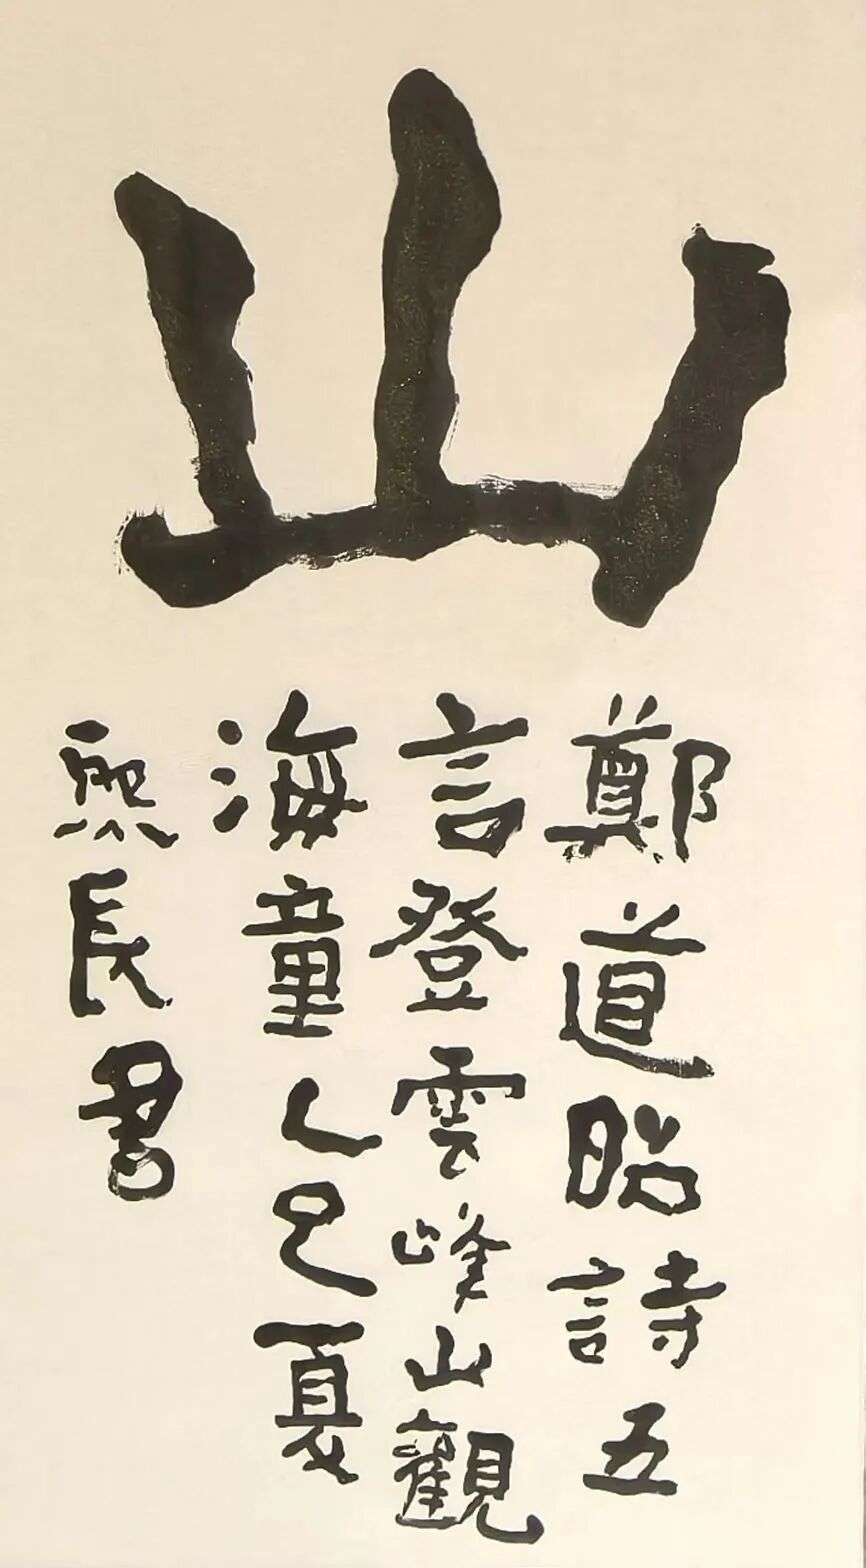 山
鄭道昭詩五
言登雲峰山觀
海童乙巳夏
熙長書